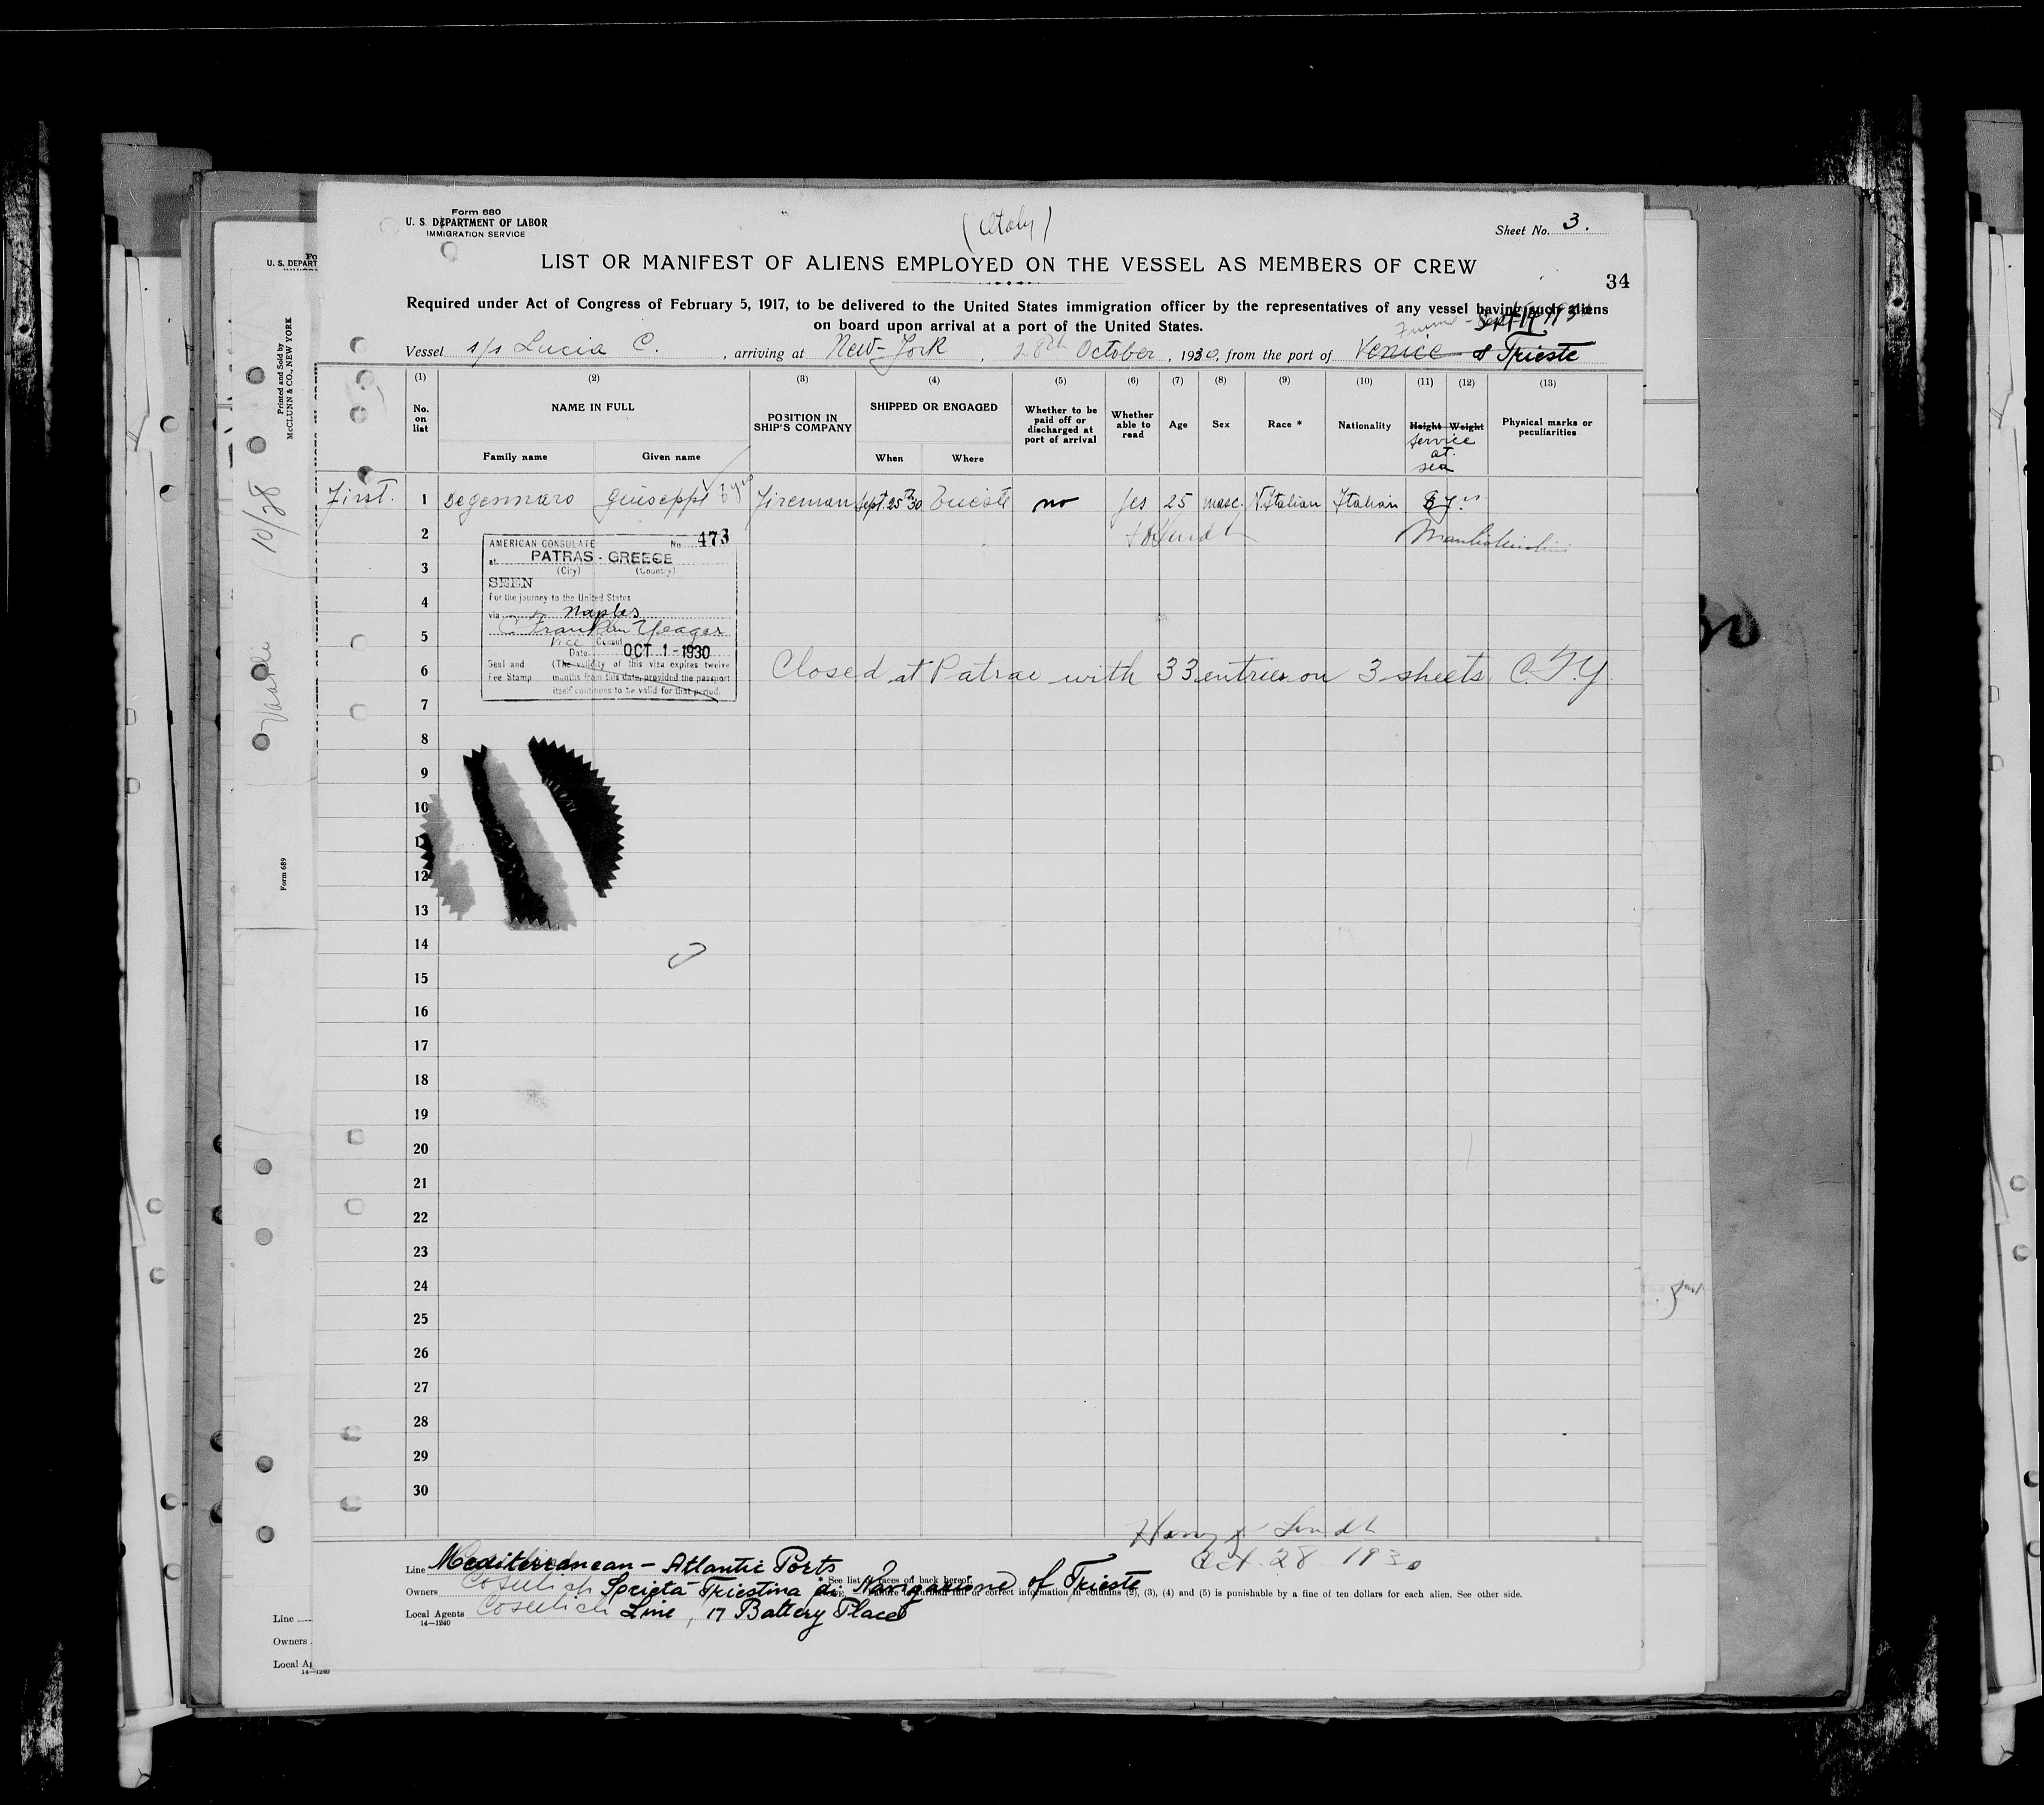 Form 680
U. S. DEPARTMENT OF LABOR
IMMIGRATION SERVICE
(Italy)
Sheet No. 3.
LIST OR MANIFEST OF ALIENS EMPLOYED ON THE VESSEL AS MEMBERS OF CREW
34
Required under Act of Congress of February 5, 1917, to be delivered to the United States immigration officer by the representatives of any vessel having such aliens
on board upon arrival at a port of the United States.
Fiume - Sept
Vessel s/s Lucia C. , arriving at New-York , 28th October , 1930, from the port of Venice & Trieste
(1) (2) (3) (4) (5) (6) (7) (8) (9) (10) (11) (12) (13)
No. on list NAME IN FULL Family name Given name POSITION IN SHIP'S COMPANY SHIPPED OR ENGAGED When Where Whether to be paid off or discharged at port of arrival Whether able to read Age Sex Race * Nationality Height Weight Service at sea Physical marks or peculiarities
First. 1 Degennaro Giuseppe Fireman Sept. 25th 30 Trieste no yes 25 masc. N.Italian Italian
2
3
4
5
6
7
8
9
10
11
12
13
14
15
16
17
18
19
20
21
22
23
24
25
26
27
28
29
30
AMERICAN CONSULATE No. 473
at PATRAS - GREECE
(City) (Country)
SEEN
For the journey to the United States
via Naples
C. Franklin Yeager
Vice Consul
Date OCT 1 - 1930
Seal and Fee Stamp
(The validity of this visa expires twelve
months from this date, provided the passport
itself continues to be valid for that period.
Closed at Patras with 33 entries on 3 sheets C.F.Y.
Oct. 28 1930
Line Mediterranean - Atlantic Ports
See list of races on back hereof.
Owners Cosulich Società Triestina di Navigazione of Trieste
Failure to furnish full or correct information in columns (2), (3), (4) and (5) is punishable by a fine of ten dollars for each alien. See other side.
Local Agents Cosulich Line, 17 Battery Place
14—1240
U. S. DEPART
Printed and Sold by
McCLUNN & CO., NEW YORK
10/28
Form 689
Line
Owners
Local A
14—1240